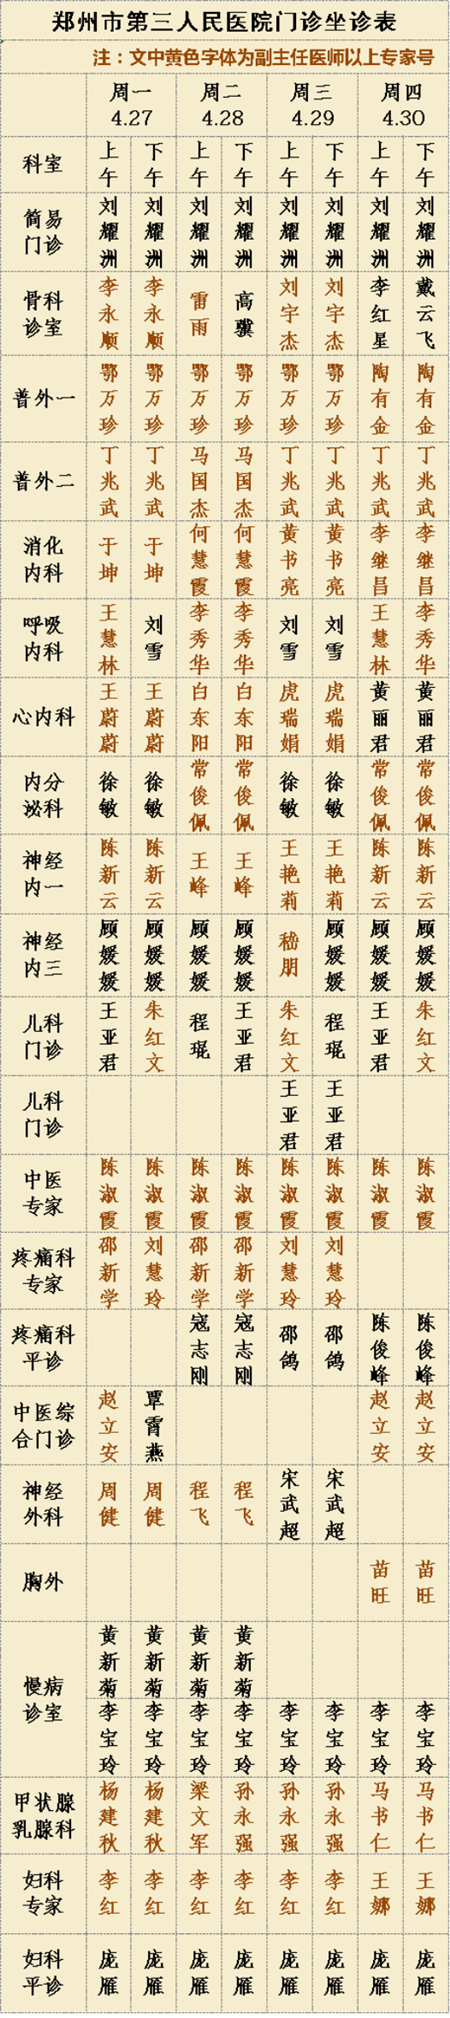 郑州市第三人民医院门诊坐诊表
注：文中黄色字体为副主任医师以上专家号
周一 4.27 周二 4.28 周三 4.29 周四 4.30
科室 上午 下午 上午 下午 上午 下午 上午 下午
简易门诊 刘耀洲 刘耀洲 刘耀洲 刘耀洲 刘耀洲 刘耀洲 刘耀洲 刘耀洲
骨科诊室 李永顺 李永顺 雷雨 高骥 刘宇杰 刘宇杰 李红星 戴云飞
普外一 鄂万珍 鄂万珍 鄂万珍 鄂万珍 鄂万珍 鄂万珍 陶有金 陶有金
普外二 丁兆武 丁兆武 马国杰 马国杰 丁兆武 丁兆武 丁兆武 丁兆武
消化内科 于坤 于坤 何慧霞 何慧霞 黄书亮 黄书亮 李继昌 李继昌
呼吸内科 王慧林 刘雪 李秀华 李秀华 刘雪 刘雪 王慧林 李秀华
心内科 王蔚蔚 王蔚蔚 白东阳 白东阳 虎瑞娟 虎瑞娟 黄丽君 黄丽君
内分泌科 徐敏 徐敏 常俊佩 常俊佩 徐敏 徐敏 常俊佩 常俊佩
神经内一 陈新云 陈新云 王峰 王峰 王艳莉 王艳莉 陈新云 陈新云
神经内三 顾媛媛 顾媛媛 顾媛媛 顾媛媛 嵇朋 顾媛媛 顾媛媛 顾媛媛
儿科门诊 王亚君 朱红文 程琨 王亚君 朱红文 程琨 王亚君 朱红文
儿科门诊 王亚君 王亚君
中医专家 陈淑霞 陈淑霞 陈淑霞 陈淑霞 陈淑霞 陈淑霞 陈淑霞 陈淑霞
疼痛科专家 邵新学 刘慧玲 邵新学 邵新学 刘慧玲 刘慧玲
疼痛科平诊 寇志刚 寇志刚 邵鸽 邵鸽 陈俊峰 陈俊峰
中医综合门诊 赵立安 覃霄燕 赵立安 赵立安
神经外科 周健 周健 程飞 程飞 宋武超 宋武超
胸外 苗旺 苗旺
慢病诊室 黄新菊 黄新菊 黄新菊 黄新菊
李宝玲 李宝玲 李宝玲 李宝玲 李宝玲 李宝玲 李宝玲 李宝玲
甲状腺乳腺科 杨建秋 杨建秋 梁文军 孙永强 孙永强 孙永强 马书仁 马书仁
妇科专家 李红 李红 李红 李红 李红 李红 王娜 王娜
妇科平诊 庞雁 庞雁 庞雁 庞雁 庞雁 庞雁 庞雁 庞雁